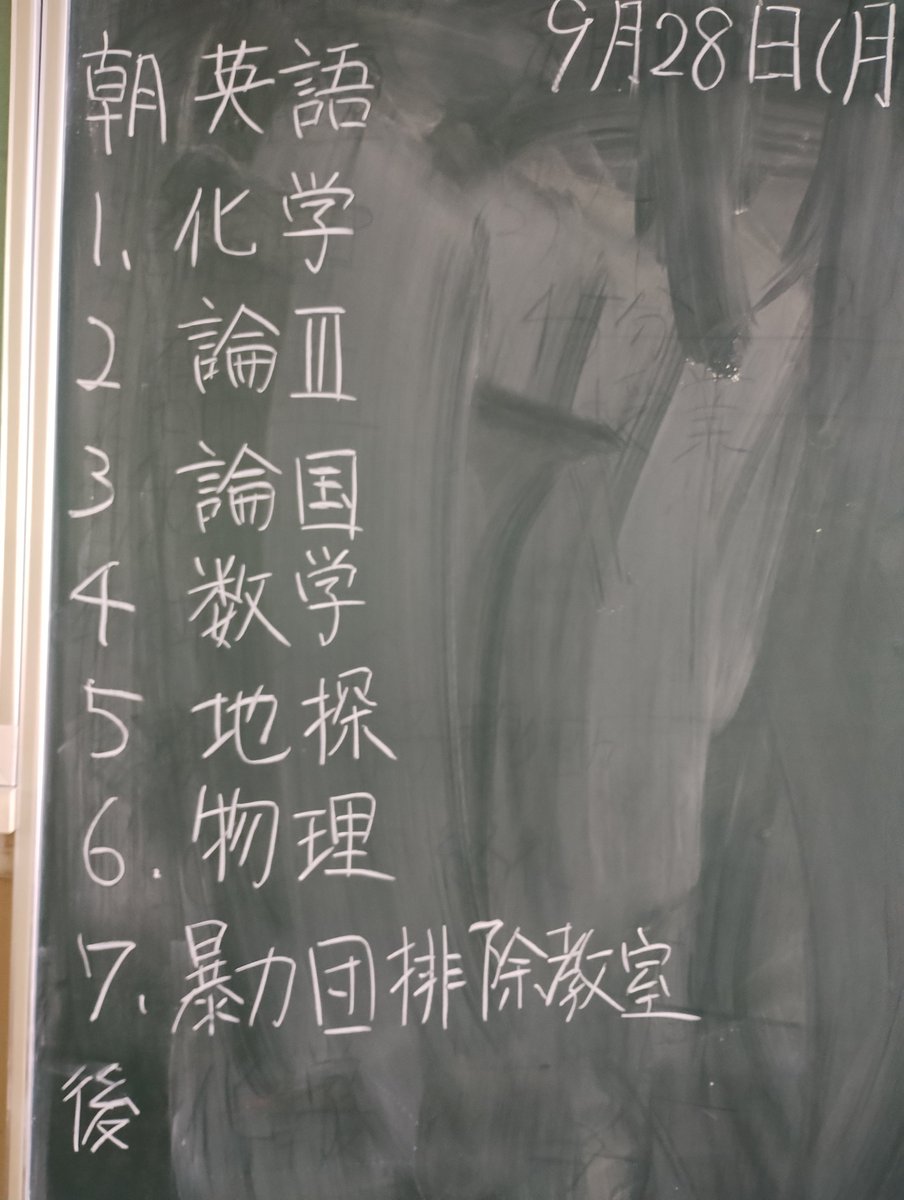 9月28日(月
朝 英語
1、化学
2 論Ⅲ
3 論国
4 数学
5 地探
6. 物理
7、暴力団排除教室
後